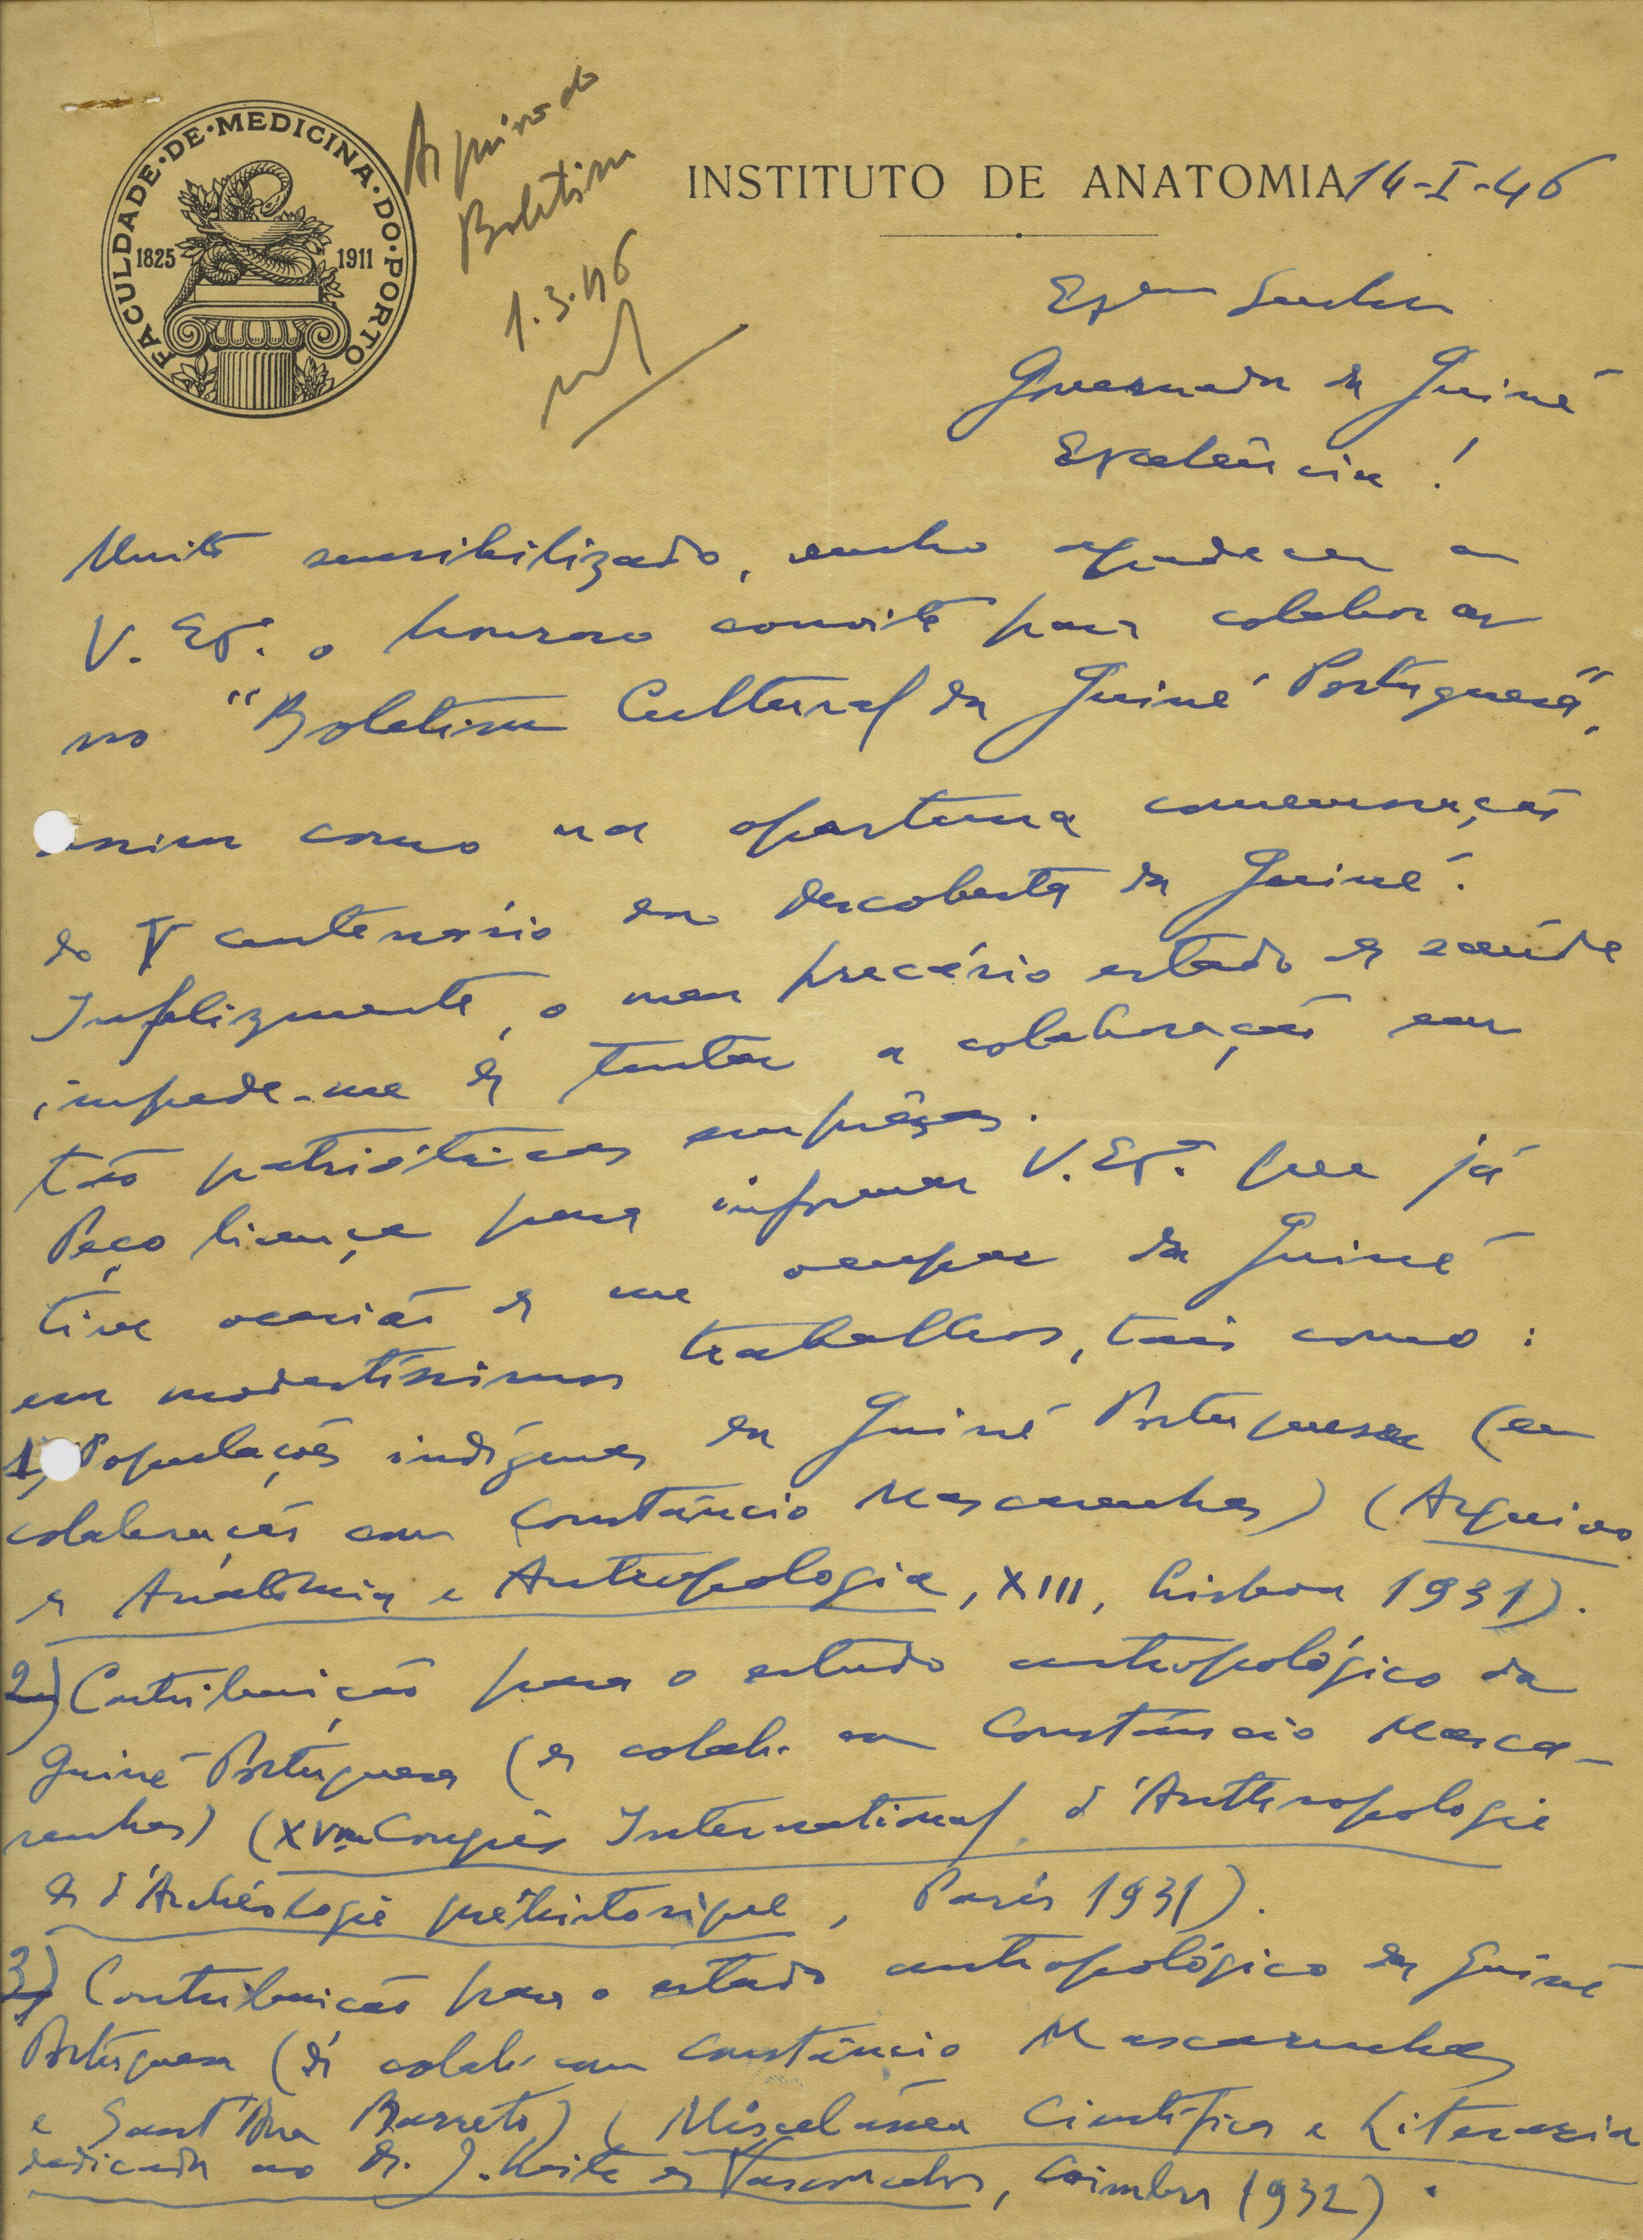 FACULDADE·DE·MEDICINA·DO·PORTO
1825 1911
Arquivo do
Boletim
1.3.46
INSTITUTO DE ANATOMIA 14-I-46
Exmo Senhor
Governador da Guiné
Excelência!
Muito sensibilizado, venho agradecer a
V. Exª. o honroso convite para colaborar
no "Boletim Cultural da Guiné Portuguesa",
assim como na oportuna comemoração
do V centenário da descoberta da Guiné.
Infelizmente, o meu precário estado de saúde
impede-me de tentar a colaboração em
tão patrióticas emprêsas.
Peço licença para informar V. Exª. que já
tive ocasião de me ocupar da Guiné
em modestíssimos trabalhos, tais como:
1) Populações indígenas da Guiné Portuguesa (em
colaboração com Constâncio Mascarenhas) (Arquivo
de Anatomia e Antropologia, XIII, Lisboa 1931).
2) Contribuição para o estudo antropológico da
Guiné Portuguesa (de colab. com Constâncio Masca-
renhas) (XVme Congrès International d'Anthropologie
et d'Archéologie préhistorique, Paris 1931).
3) Contribuição para o estudo antropológico da Guiné
Portuguesa (de colab. com Constâncio Mascarenhas
e Sant'Ana Barreto) (Miscelânea Científica e Literária
dedicada ao Dr. J. Leite de Vasconcelos, Coimbra 1932).